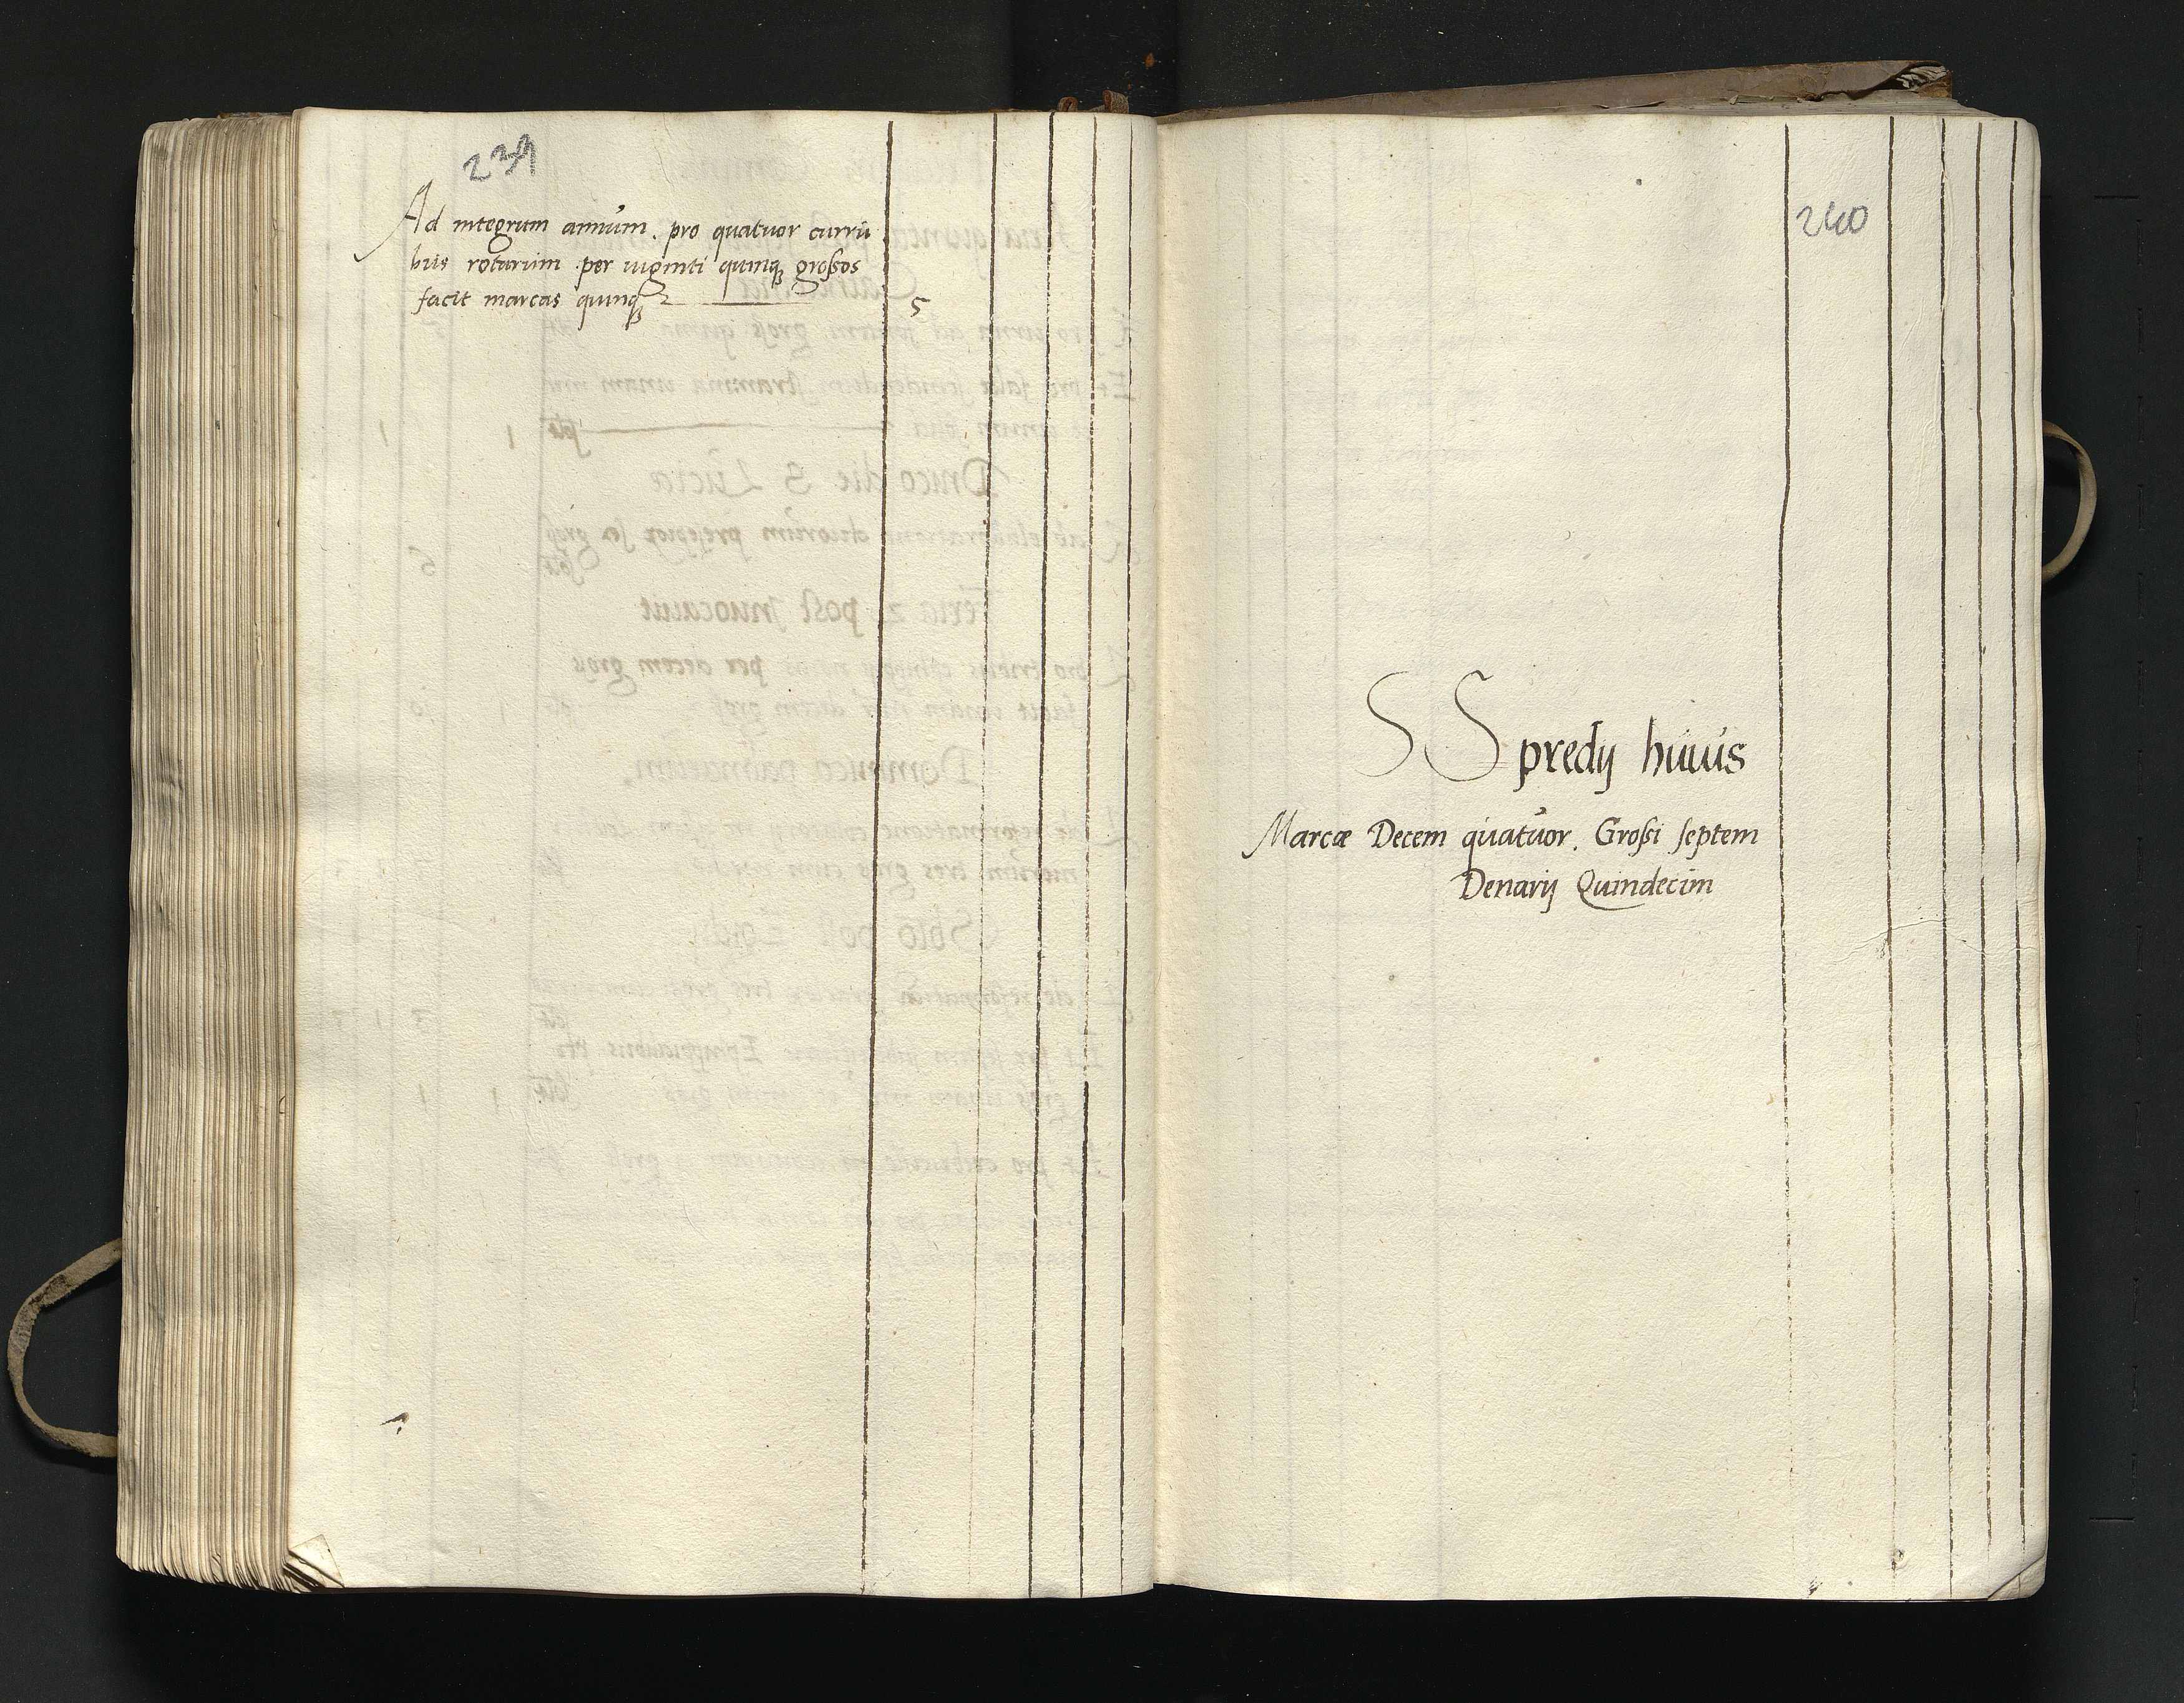 239
Ad integrum annum. pro quatuor curru
bus rotarum per uiginti quinqꝫ großos
facit marcas quinqꝫ 5
240
SS predij huius
Marcæ Decem quatuor. Großi septem
Denarij Quindecim